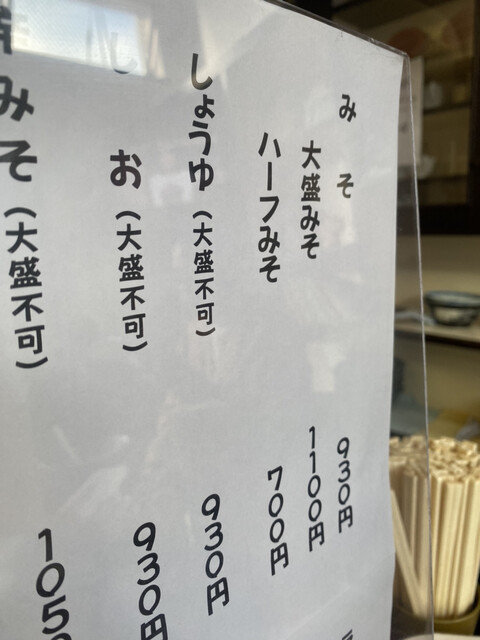 みそ 930円
大盛みそ 1100円
ハーフみそ 700円
しょうゆ（大盛不可） 930円
しお（大盛不可） 930円
みそ（大盛不可） 105